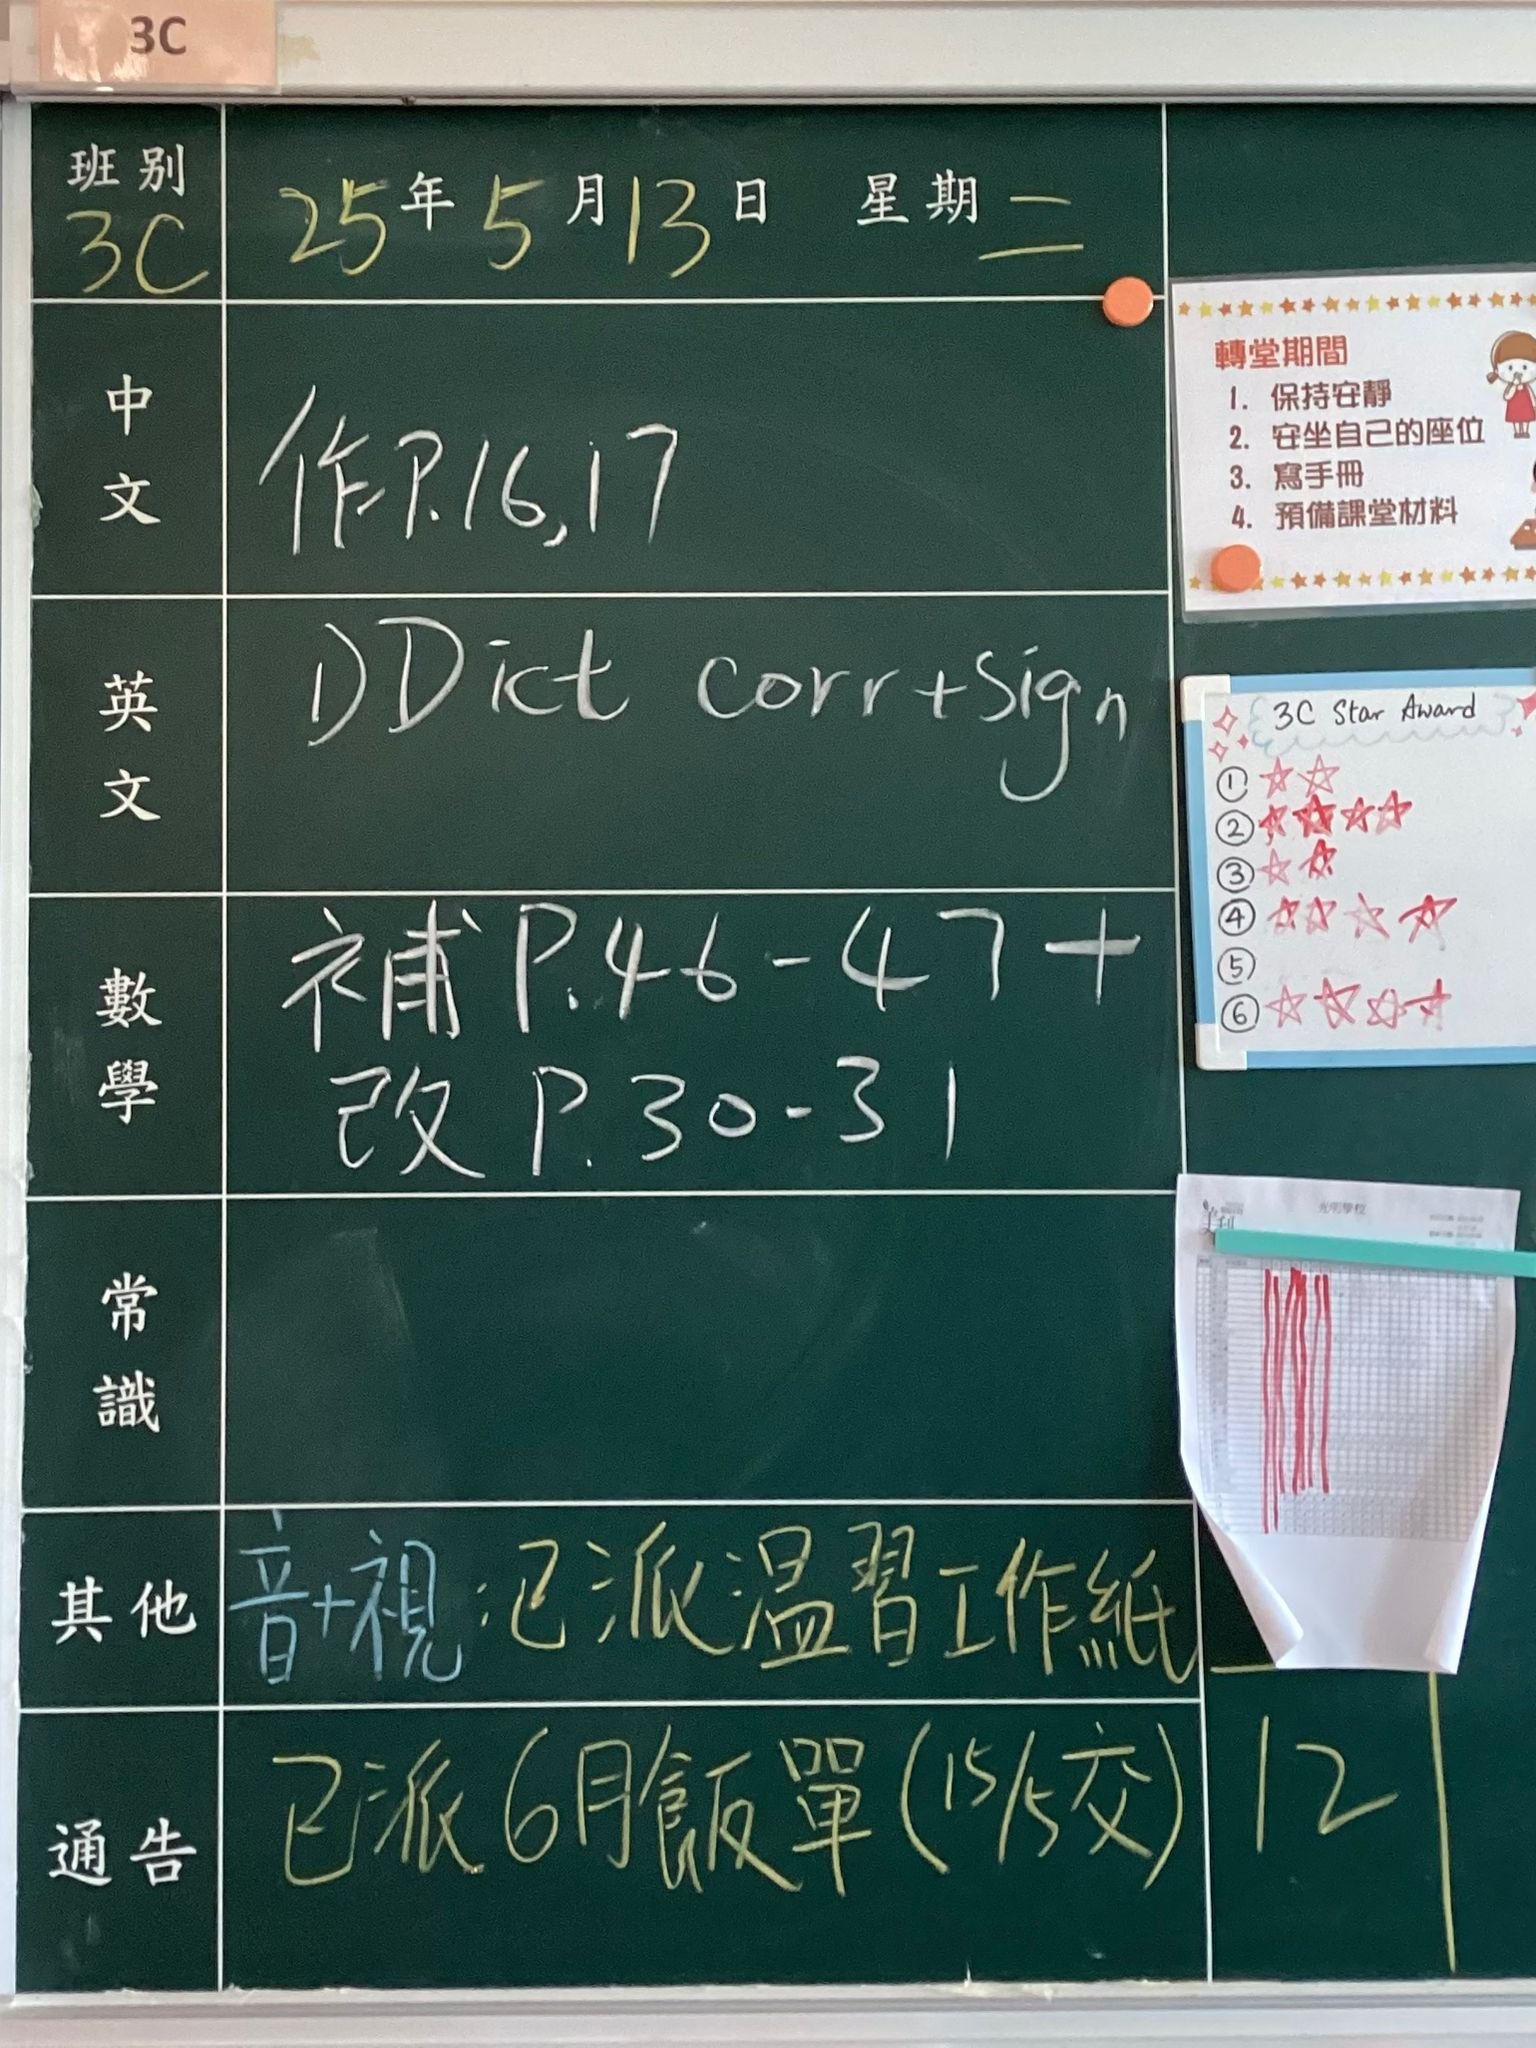 3C
班別 3C
25年5月13日 星期二
中文
作P.16,17
英文
1) Dict corr+sign
數學
補 P.46-47+
改 P.30-31
常識
其他
音+視:已派温習工作紙
通告
已派6月飯單(15/5交)
12
轉堂期間
1. 保持安靜
2. 安坐自己的座位
3. 寫手冊
4. 預備課堂材料
3C Star Award
①
②
③
④
⑤
⑥
光明學校